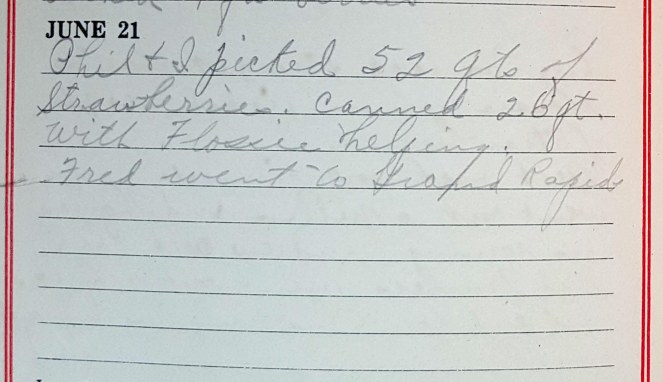 JUNE 21
Phil & I picked 52 qts of
Strawberries. Canned 26 qt.
With Flossie helping.
Fred went to Grand Rapids